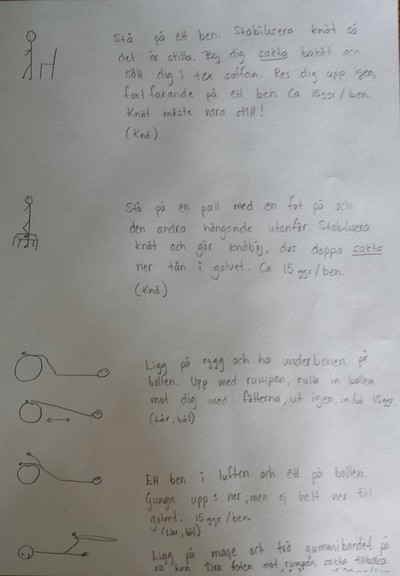 Stå på ett ben. Stabilisera knät så
det är stilla. Böj dig sakta bakåt och
sätt dig i tex soffan. Res dig upp igen,
fortfarande på ett ben. Ca 15ggr/ben.
Knät måste vara still!
(Knä)
Stå på en pall med en fot på och
den andra hängande utanför. Stabilisera
knät och gör knäböj, dvs doppa sakta
ner tån i golvet. Ca 15 ggr/ben.
(Knä)
Ligg på rygg och ha underbenen på
bollen. Upp med rumpan, rulla in bollen
mot dig med fötterna, ut igen, in 15ggr.
(Lår, bål)
Ett ben i luften och ett på bollen.
Gunga upp & ner, men ej helt ner till
golvet. 15ggr/ben.
(Lår, bål)
Ligg på mage och trä gummibandet på
foten mot rumpan, sakta tillbaka.